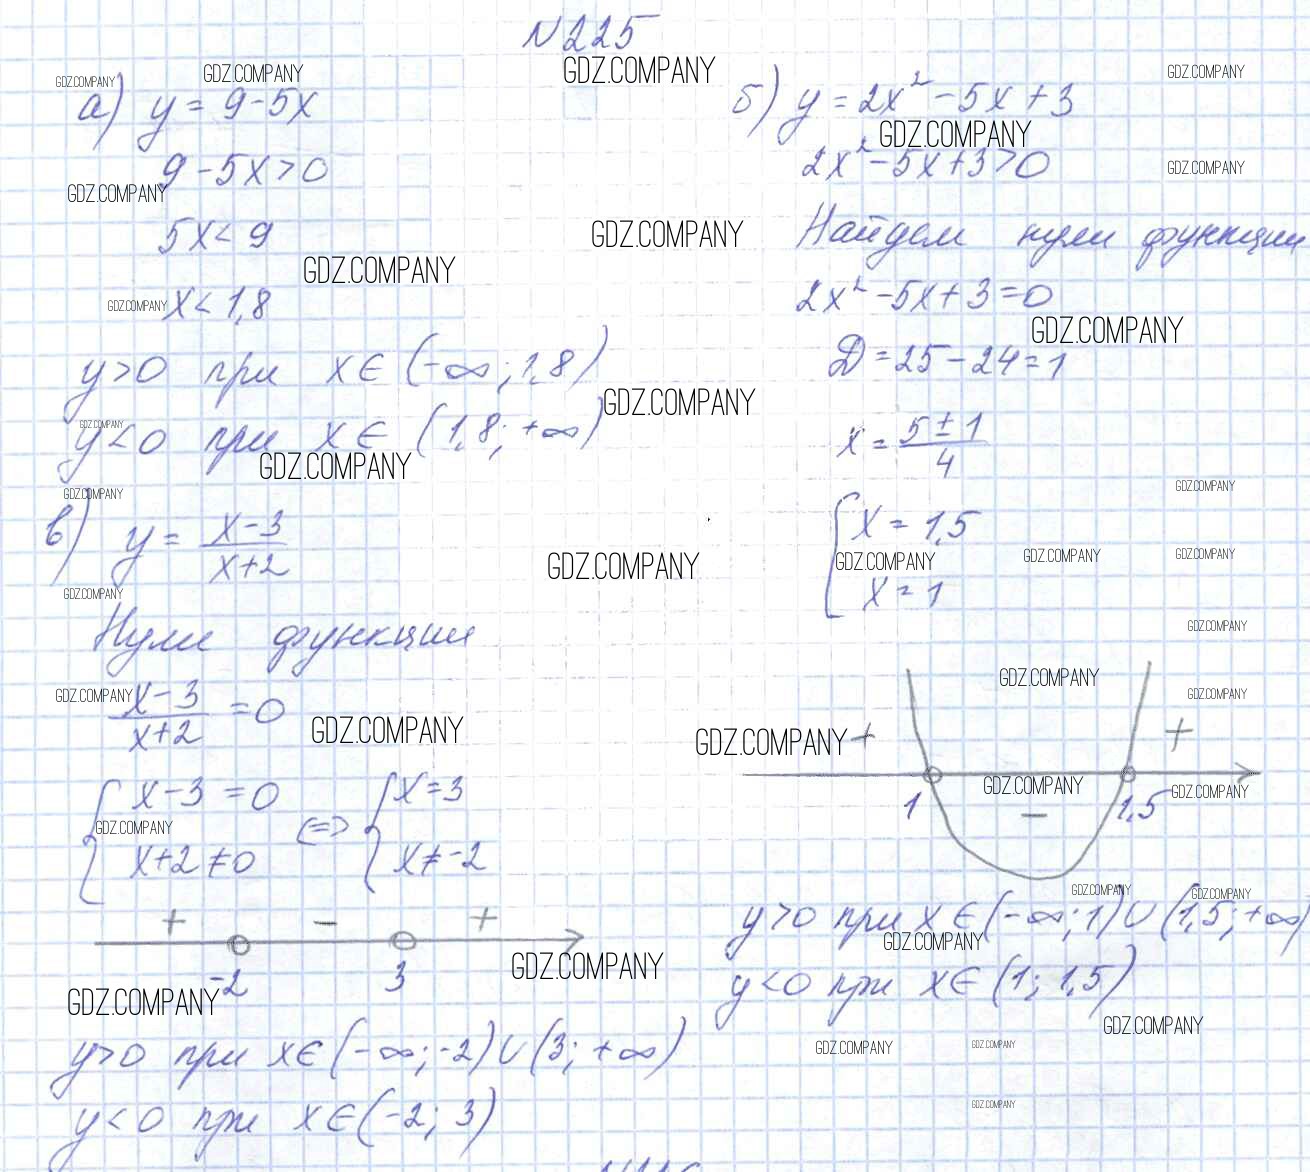 N 225
а) y = 9-5x
9-5x>0
5x<9
x<1,8
y>0 при x∈(-∞; 1,8)
y<0 при x∈(1,8; +∞)
б) y = 2x² - 5x + 3
2x² - 5x + 3 > 0
Найдем нули функции
2x² - 5x + 3 = 0
D = 25 - 24 = 1
x = (5 ± 1)/4
[x = 1,5
x = 1
+ - +
1 1,5
y>0 при x∈(-∞; 1)∪(1,5; +∞)
y<0 при x∈(1; 1,5)
в) y = (x-3)/(x+2)
Нули функции
(x-3)/(x+2) = 0
{x-3 = 0 <=> {x = 3
x+2 ≠ 0 x ≠ -2
+ - +
-2 3
y>0 при x∈(-∞; -2)∪(3; +∞)
y<0 при x∈(-2; 3)
GDZ.COMPANY